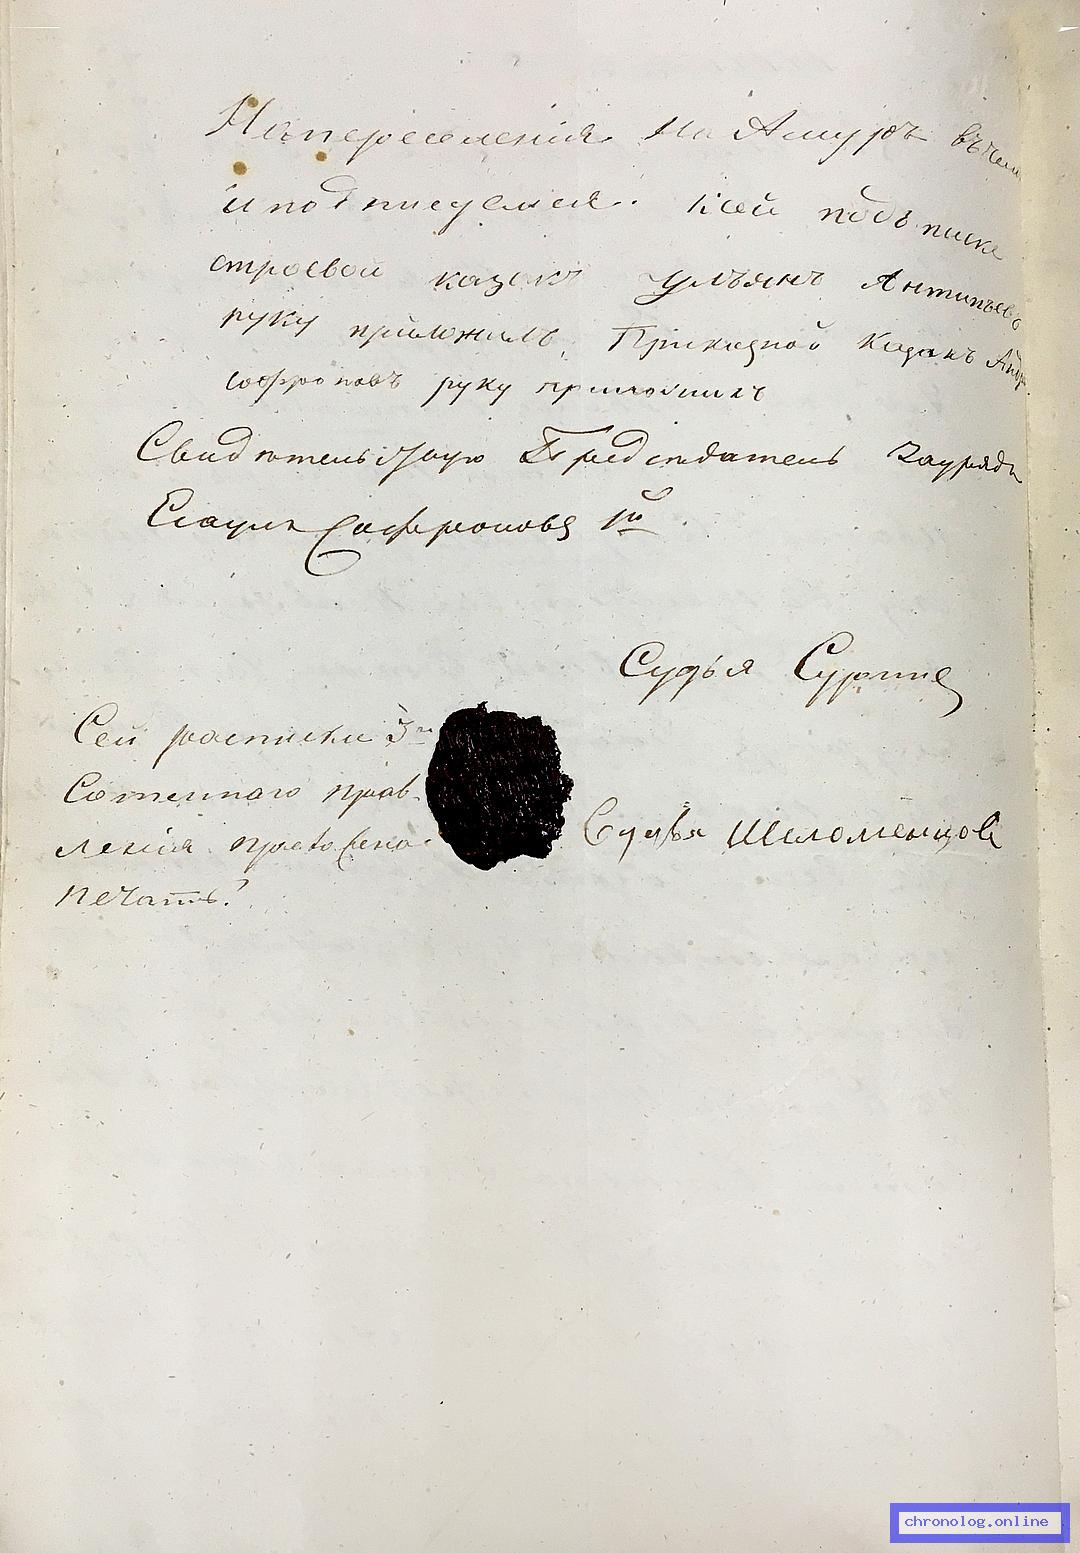 На переселения на Амуръ въ чем
и подписуемся. К сей подъписке
строевой казакъ Ульянъ Антипьевъ
руку приложилъ, Приказной Казакъ Андр
софроновъ руку приложилъ
Свидѣтельствую Предсѣдатель Заурядъ
Есаулъ Софроновъ 1й
Судья Суринъ
Сей расписки 3й
Сотеннаго прав-
ления приложена
печать.
Судья Шеломенцов
chronolog.online